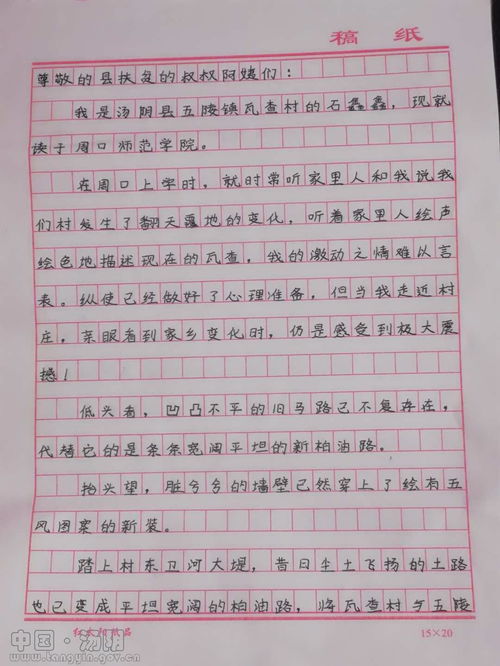 稿 纸
尊敬的县扶贫的叔叔阿姨们：
我是汤阴县五陵镇瓦查村的石鑫鑫，现就
读于周口师范学院。
在周口上学时，就时常听家里人和我说我
们村发生了翻天覆地的变化，听着家里人绘声
绘色地描述现在的瓦查，我的激动之情难以言
表。纵使已经做好了心理准备，但当我走近村
庄，亲眼看到家乡变化时，仍是感受到极大震
撼！
低头看，凹凸不平的旧马路已不复存在，
代替它的是条条宽阔平坦的新柏油路。
抬头望，脏兮兮的墙壁已然穿上了绘有五
风图案的新装。
踏上村东卫河大堤，昔日尘土飞扬的土路
也已变成平坦宽阔的柏油路，将瓦查村与五陵
红太阳纸品 15×20
中国·汤阴
www.tangyin.gov.cn